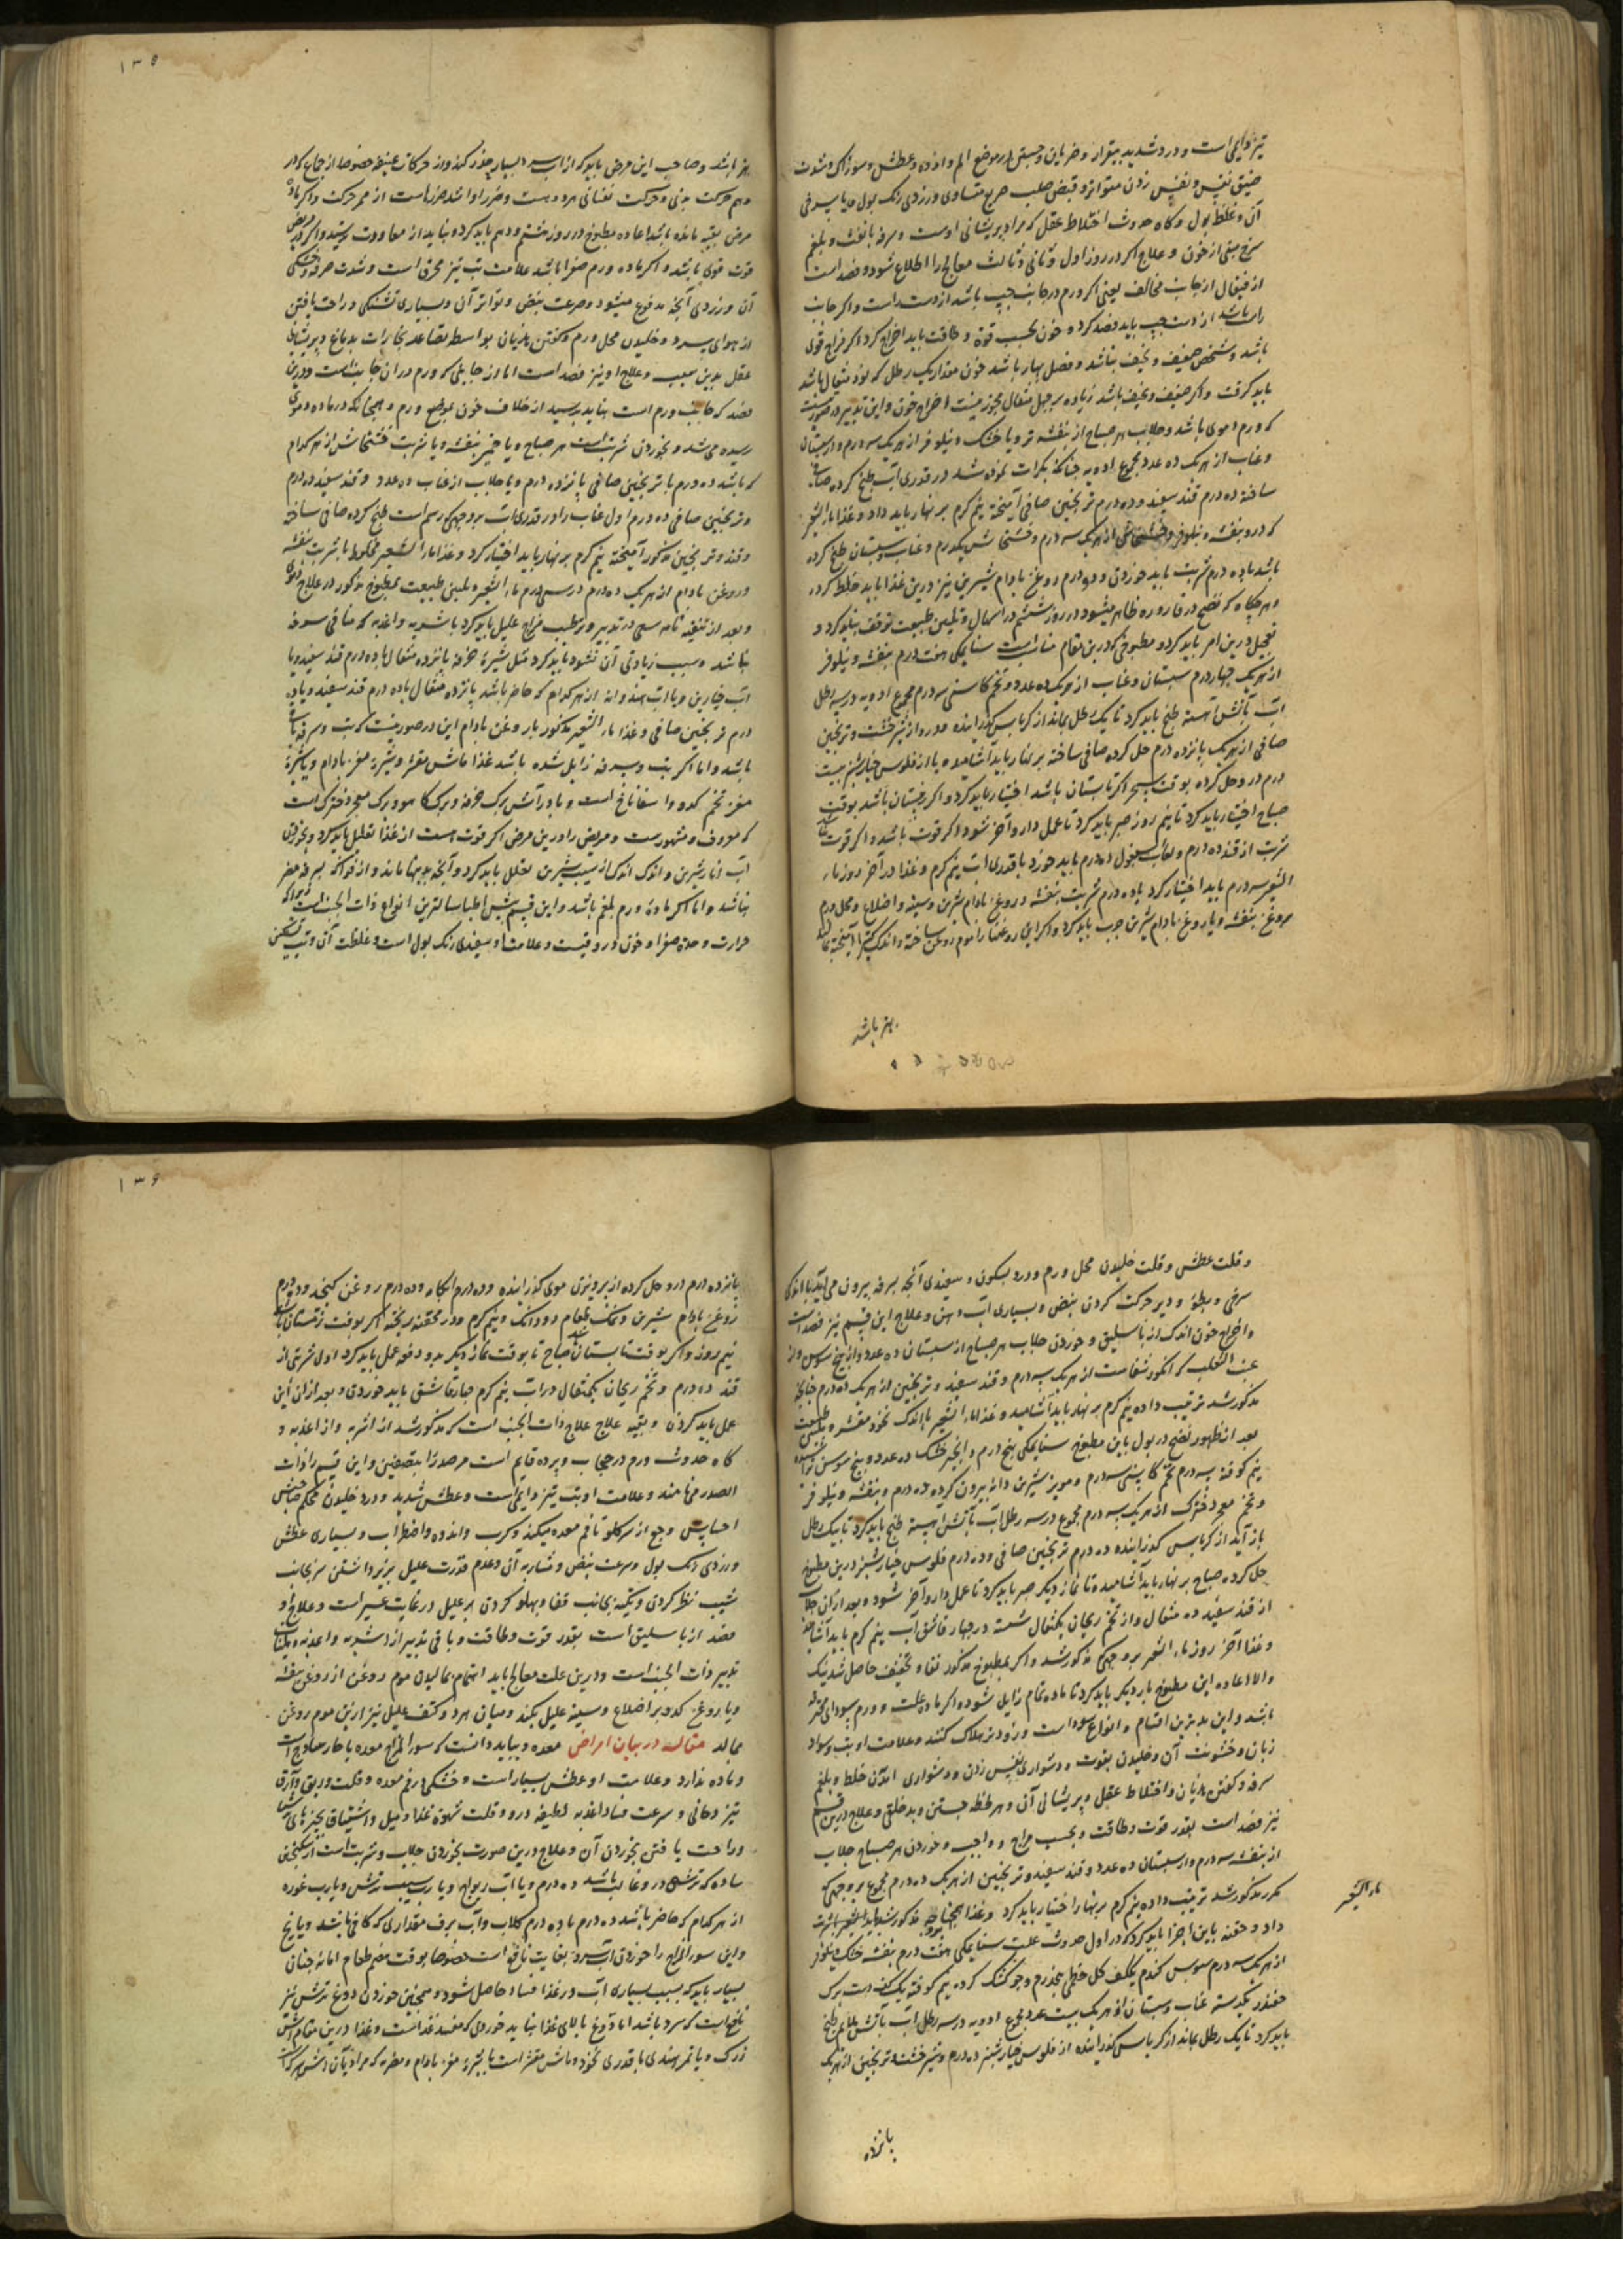 تیز دایمی است و درد شدید بیقرار و ضربان و جستن در موضع الم و اندوه و عطش و سوزاکی و شدت
ضیق نفس و نفس زدن متواتر و قبض صلب سریع متساوی و زردی رنک بول یا با سرخی
آن و غلظ بول و کاه حدوث اختلاط عقل که مراد پریشانی اوست و سرفه با نفث و بلغم
سرخ مبنی از خون و علاج اکر در روز اول و ثانی و ثالث معالج را اطلاع شود فصد است
از قیفال از جانب مخالف یعنی اکر ورم در جانب چپ باشد از دست راست و اکر جانب
راست باشد از دست چپ باید فصد کرد و خون بحسب قوة و طاقت باید اخراج کرد اکر مزاج قوی
باشد و شخص ضعیف و نحیف نباشد و فصل بهار باشد خون مقدار یک رطل که نود مثقال باشد
باید کرفت و اکر ضعیف و نحیف باشد زیاده بر چهل مثقال مجوز نیست اخراج خون و این تدبیر در صورتیست
که ورم دموی باشد و جلاب هر صباح از بنفشه تر و یا خشک و نیلوفر از هر یک سه درم و از سپستان
و عناب از هر یک ده عدد مجموع ادویه چنانکه بکرات نموده شد در قدری آب طبخ کرده صافی
ساخته ده درم قند سفید و ده درم ترنجبین صافی آمیخته نیم کرم بر نهار باید داد و غذا ماء الشعیر
که در و بنفشه و نیلوفر از هر یک سه درم و خشخاش یکدرم و عناب و سپستان طبخ کرده
باشد با ده درم شربت باید خوردن و دو درم روغن بادام شیرین نیز درین غذا باید خلط کرد
و هر چکاه که نضج در قاروره ظاهر میشود در روز ششم در اسهال و تلیین طبیعت توقف نباید کرد و
تعجیل درین امر باید کرد و مطبوخی که درین مقام مناسب است سنا مکی هفت درم بنفشه و نیلوفر
از هر یک چهار درم سپستان و عناب از هر یک ده عدد و تخم کاسنی سه درم مجموع ادویه در سه رطل
آب بآتش آهسته طبخ باید کرد تا یک رطل بماند از کرباس کذرانیده و در و از شیر خشت و ترنجبین
صافی از هر یک پانزده درم حل کرده صافی ساخته بر نهار باید آشامیده یا از فلوس خیار شنبر بیست
درم در و حل کرده بوقت سحر اکر تابستان باشد اختیار باید کرد و اکر زمستان باشد بوقت
صباح اختیار باید کرد تا نیم روز صبر باید کرد تا عمل دارو آخر شود اکر قوت باشد و اکر قوت نباشد
شربت از قند ده درم و لعاب اسبغول ده درم باید خورد با قدری آب نیم کرم و غذا در آخر روز ماء
الشعیر سه درم باید اختیار کرد با ده درم شربت بنفشه و روغن بادام شیرین و سینه و اضلاع و محل ورم
بروغن بنفشه و یا روغن بادام شیرین چرب باید کرد و اکر این روغنها را موم روغن ساخته و اندک کتیرا آمیخته بمالند
بهتر باشد
۱۳۵
بهتر باشد و صاحب این مرض باید که از اب سرد بسیار حذر کند و از حرکات عنیفه خصوصا از جماع که در
و هم حرکت بدنی و حرکت نفسانی هر دو هست و ضرر او اشد ضررهاست از هر حرکت و اکر ماده
مرض بقیه مانده باشد اعاده مطبوخ در روز هشتم و دهم باید کرد و نباید از معاودت ترسید و اکر مریض
قوت قوی باشد و اکر ماده ورم صفرا باشد علامت تب تیز محرق است و شدت سرفه و خشکی
آن و زردی آنچه مدفوع میشود و سرعت نبض و تواتر آن و بسیاری تشنکی و راحت یافتن
از هوای سرد و خلیدن محل ورم و کفتن هذیان بواسطه تصاعد بخارات بدماغ و پریشانی
عقل بدین سبب و علاج او نیز فصد است اما از جانبی که ورم در ان جانب است و درین
فصد که جانب ورم است نباید ترسید از خلاف خون بموضع ورم و همچنانکه در ماده دموی
رسیده می شد و بخوردن شربت است هر صباح و یا خمیر بنفشه و یا شربت خشخاش از هر کدام
که باشد ده درم با ترنجبین صافی پانزده درم و یا جلاب از عناب ده عدد و قند سفید ده درم
و ترنجبین صافی ده درم اول عناب را در قدری آب بروجهی که رسم است طبخ کرده صافی ساخته
و قند و ترنجبین مذکور آمیخته نیم کرم بر نهار باید اختیار کرد و غذا ماء الشعیر مخلوط با شربت بنفشه
و روغن بادام از هر یک ده درم در سی درم ماء الشعیر و تلیین طبیعت بمطبوخ مذکور در علاج دموی
و بعد از تنقیه تامه سعی در تدبیر و ترطیب مزاج علیل باید کرد باشربه و اغذیه که منافی سرفه
نباشد و سبب زیادتی آن نشود باید کرد مثل شیرهٔ خرفه پانزده مثقال با ده درم قند سفید و یا
آب خیارین و یا اب هندوانه از هر کدام که حاضر باشد پانزده مثقال با ده درم قند سفید و یا ده
درم ترنجبین صافی و غذا ماء الشعیر مذکور با روغن بادام این در صورتیست که تب و سرفه باقی
باشد و اما اکر تب و سرفه زایل شده باشد غذا ماش مقشر و شیرهٔ مغز بادام و یا شیرهٔ
مغز تخم کدو و اسفاناخ است و یا در آش برک خرفه و برک کاهو و برک معجه دخترک است
که معروف و مشهورست و مریض را درین مرض اکر قوت هست از غذا تقلیل باید کرد و بخوردن
آب انار شیرین و اندک اندک از سیب شیرین تعلل باید کرد و آنچه بدینها ماند و از فواکه بسرفه مضر
نباشد و اما اکر مادهٔ ورم بلغم باشد و این قسم پیش اطبا سالمترین انواع ذات الجنب است زیرا که
حرارت و حدة صفرا و خون در و نیست و علامت او سفیدی رنک بول است و غلظت آن و تب تسکین
و قلت عطش و قلت خلیدن محل ورم و درد بسکون و سفیدی آنچه بسرفه بیرون می آید با اندکی
سرخی و بطؤ و دیر حرکت کردن نبض و بسیاری آب دهن و علاج این قسم نیز فصد است
و اخراج خون اندک از باسلیق و خوردن جلاب هر صباح از سپستان ده عدد و از بیخ سوس و از
عنب الثعلب که انکور شفا ست از هر یک سه درم و قند سفید و ترنجبین از هر یک ده درم چنانچه
مذکور شد ترتیب داده نیم کرم بر نهار باید آشامید و غذا ماء الشعیر با اندک نخود مقشر و تلیین طبیعت
بعد از ظهور نضج در بول باین مطبوخ سنا مکی پنج درم و انجیر خشک ده عدد و بیخ سوسن تراشیده
نیم کوفته سه درم تخم کاسنی سه درم و مویز شیرین دانه بیرون کرده ده درم و بنفشه و نیلوفر
و تخم معجه دخترک از هر یک سه درم مجموع در سه رطل آب بآتش آهسته طبخ باید کرد تا بیک رطل
باز آید از کرباس کذرانیده ده درم ترنجبین صافی و ده درم فلوس خیار شنبر درین مطبوخ
حل کرده صباح بر نهار باید آشامیده تا نماز دیکر صبر باید کرد تا عمل دارو آخر شود و بعد از آن جلاب
از قند سفید ده مثقال و از تخم ریحان یکمثقال شسته در چهار قاشق آب نیم کرم باید آشامید
و غذا آخر روز ماء الشعیر بروجهی که مذکور شد و اکر بمطبوخ مذکور نقا و تخفیف حاصل شد نیک
و الا اعاده این مطبوخ بار دیکر باید کرد تا ماده تمام زایل شود و اکر ماده علت و ورم سودای محترقه
باشد و این بدترین اقسام و انواع سوداست و زود تر هلاک کنند و علامت او تب و سواد
زبان و خشونت آن و خلیدن بقوت و دشواری نفس زدن و دشواری آمدن خلط و بلغم
سرفه و کفتن هذیان و اختلاط عقل و پریشانی آن و هر لحظه جستن و بدخلقی و علاج درین قسم
نیز فصد است بقدر قوت و طاقت و بحسب مزاج و واجبه و خوردن هر صباح جلاب
از بنفشه سه درم و از سپستان ده عدد و قند سفید و ترنجبین از هر یک ده درم مجموع بروجهی که
مکرر مذکور شد ترتیب داده نیم کرم بر نهار اختیار باید کرد و غذا همچنانچه مذکور شد باید ماء الشعیر با شربت
ماء الشعیر
داد و حقنه باین اجزا باید کرد که در اول حدوث علت سنا مکی هفت درم بنفشه خشک و نیلوفر
از هر یک سه درم سبوس کندم یک کف کل خطمی پنجدرم و جو کشک کرده نیم کوفته یک کف دست برک
چغندر یکدسته عناب و سپستان از هر یک بیست عدد مجموع ادویه در سه رطل آب بآتش ملایم طبخ
باید کرد تا یک رطل بماند از کرباس کذرانیده از فلوس خیار شنبر ده درم و شیر خشت و ترنجبین از هر یک
پانزده
۱۳۶
پانزده درم در و حل کرده از پرویزن موی کذرانیده و ده درم آبکامه و ده درم روغن کنجد و ده درم
روغن بادام شیرین و نمک طعام دو دانک و نیم کرم و در محقنه ریخته اکر بوقت زمستان باشد
نیم روز و اکر بوقت تابستان صباح تا بوقت نماز دیکر بدو دفعه عمل باید کرد اول شربتی از
قند ده درم و تخم ریحان یکمثقال در آب نیم کرم چهار قاشق باید خوردن و بعد از ان این
عمل باید کردن و بقیه علاج علاج ذات الجنب است که مذکور شد از اشربه و از اغذیه و
کاه حدوث ورم در حجاب و پرده قایم است مر صدر را بتصفین و این قسم را ذات
الصدر می نامند و علامت او تب تیز دایمی است و عطش شدید و درد خلیدن محکم
احساس وجع از سر کلو تا فم معده میکند و کرب و اندوه و اضطراب و بسیاری عطش
و زردی رنک بول و سرعت نبض و منشاریه آن و عدم قدرت علیل بر برداشتن سر بجانب
شیب نظر کردن و تکیه بجانب قفا و پهلو کردن بر علیل در غایت عسیر است و علاج او
فصد از باسلیق است بقدر قوت و طاقت و باقی تدبیر از اشربه و اغذیه و تلیینات
تدبیر ذات الجنب است و درین علت معالج باید اهتمام بمالیدن موم روغن از روغن بنفشه
و یا روغن کدو بر اضلاع و سینه علیل بکند و میان هر دو کتف علیل نیز ازین موم روغن
بمالد مقاله در بیان امراض معده و بباید دانست که سوء المزاج معده یا حار ساذج است
و ماده ندارد و علامت او عطش بسیار است و خشکی در فم معده و قلت و ریق و آروق
تیز دخانی و سرعت فساد اغذیه لطیفه در و و قلت شهوة غذا و میل و اشتیاق بچیزهای ترش
و راحت یافتن بخوردن آن و علاج درین صورت بخوردن جلاب و شربت است از سکنجبین
ساده که ترشی در و غالب باشد ده درم و یا آب ریواج و یا رب سیب ترش و یا رب غوره
از هر کدام که حاضر باشد ده درم با ده درم کلاب و آب برف مقداری که کافی باشد و یا یخ
و این سوء المزاج را خوردن آب سرد بغایت نافع است خصوصا بوقت هضم طعام اما نه چنان
بسیار باید که بسبب بسیاری آب در غذا فساد حاصل شود و همچنین خوردن دوغ ترش نیز
نافع است که سرد باشد اما دوغ بالای غذا نباید خوردن که مفسد غذاست و غذا درین مقام آش
زرک و یا تمر هندی با قدری نخود و ماش مقشر است با شیرهٔ مغز بادام و مضره که مراد بآن آش سرکه است